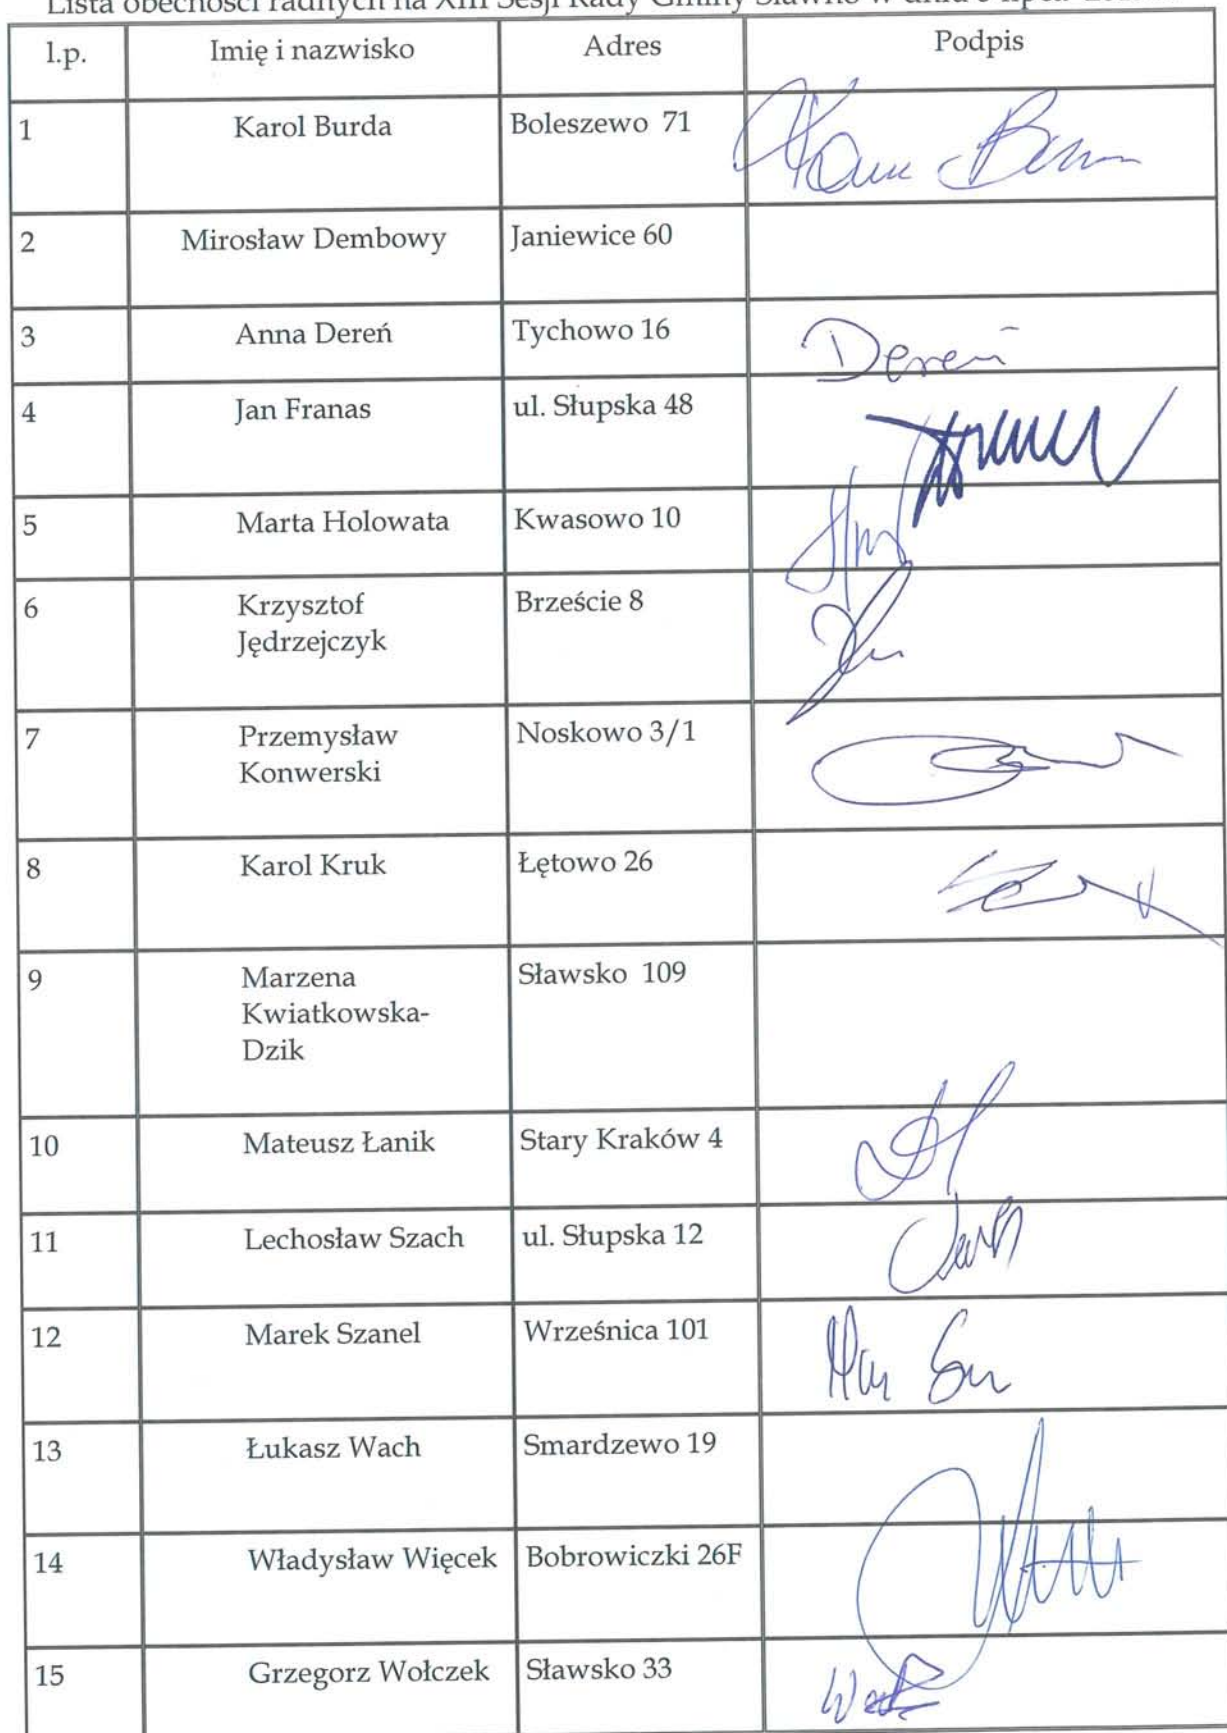 Lista obecności radnych na XIII Sesji Rady Gminy Sławno w dniu
l.p. Imię i nazwisko Adres Podpis
1 Karol Burda Boleszewo 71
2 Mirosław Dembowy Janiewice 60
3 Anna Dereń Tychowo 16 Dereń
4 Jan Franas ul. Słupska 48
5 Marta Holowata Kwasowo 10
6 Krzysztof Brzeście 8
Jędrzejczyk
7 Przemysław Noskowo 3/1
Konwerski
8 Karol Kruk Łętowo 26
9 Marzena Sławsko 109
Kwiatkowska-
Dzik
10 Mateusz Łanik Stary Kraków 4
11 Lechosław Szach ul. Słupska 12
12 Marek Szanel Wrześnica 101
13 Łukasz Wach Smardzewo 19
14 Władysław Więcek Bobrowiczki 26F
15 Grzegorz Wołczek Sławsko 33